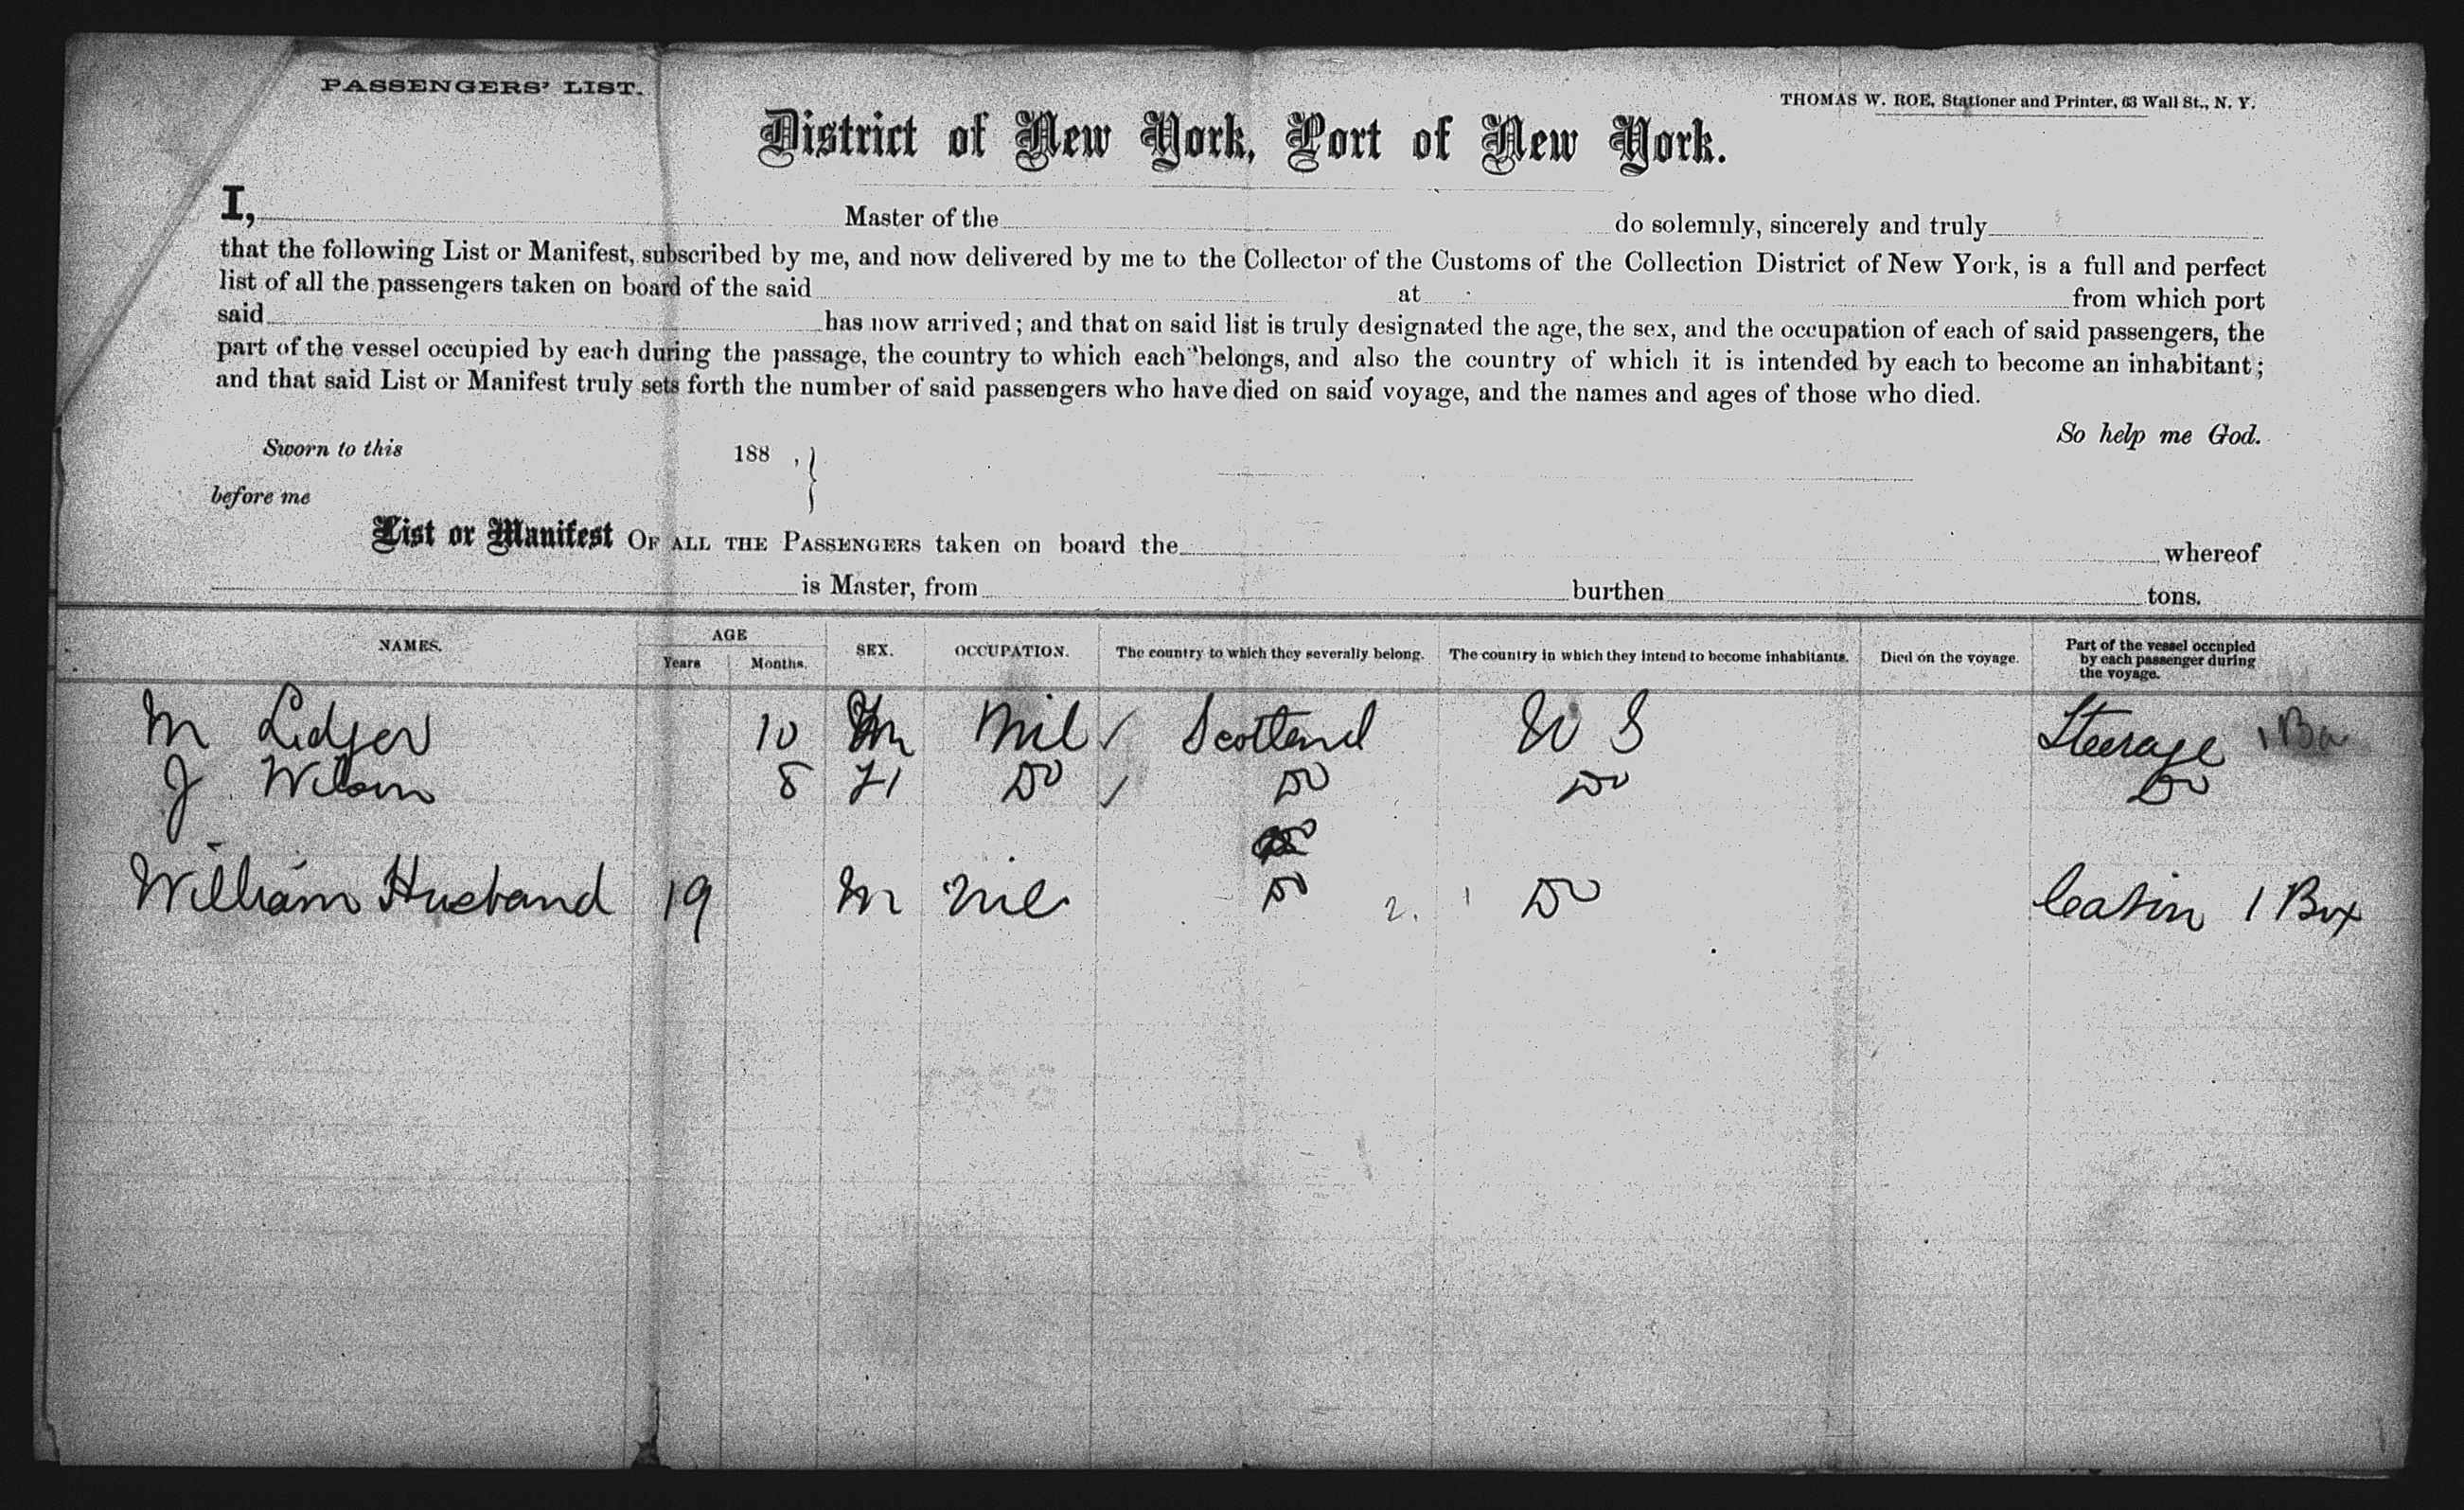 PASSENGERS' LIST.
THOMAS W. ROE, Stationer and Printer, 63 Wall St., N. Y.
District of New York, Port of New York.
I, Master of the do solemnly, sincerely and truly
that the following List or Manifest, subscribed by me, and now delivered by me to the Collector of the Customs of the Collection District of New York, is a full and perfect
list of all the passengers taken on board of the said at from which port
said has now arrived; and that on said list is truly designated the age, the sex, and the occupation of each of said passengers, the
part of the vessel occupied by each during the passage, the country to which each belongs, and also the country of which it is intended by each to become an inhabitant;
and that said List or Manifest truly sets forth the number of said passengers who have died on said voyage, and the names and ages of those who died.
So help me God.
Sworn to this 188 , }
before me
List or Manifest OF ALL THE PASSENGERS taken on board the whereof
is Master, from burthen tons.
NAMES. AGE Years Months. SEX. OCCUPATION. The country to which they severally belong. The country in which they intend to become inhabitants. Died on the voyage. Part of the vessel occupied by each passenger during the voyage.
M Ledger 10 M Nil Scotland U S Steerage 1 Ba
J Wilson 8 Do Do Do Do
William Husband 19 M Nil Do 2. 1 Do Cabin 1 Box